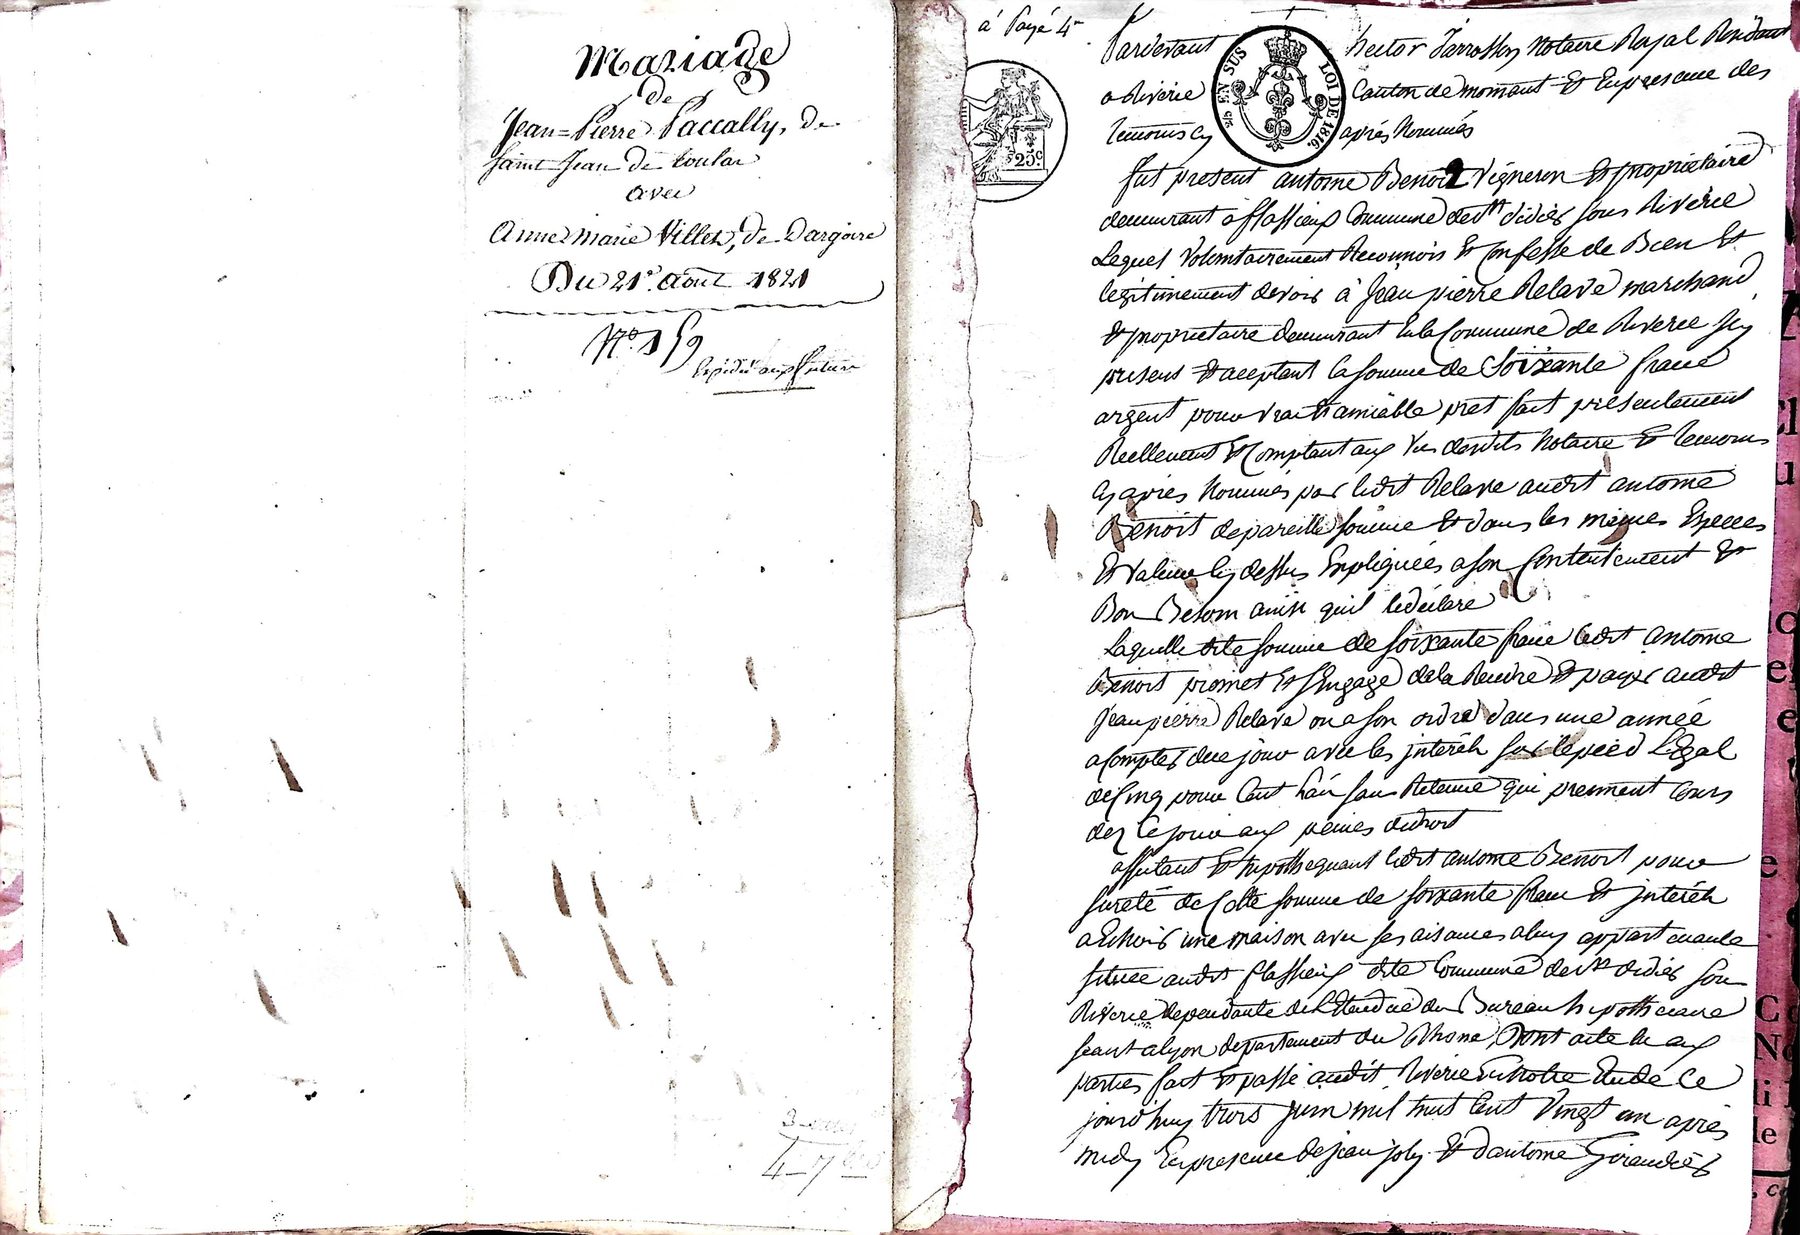 Mariage
de
Jean=Pierre Paccally, de
saint Jean de toulas
avec
Anne marie Villez, de Dargoire
Du 21e. Août 1821
N.o 159
Expédié aux futurs
3
4
à Payé 4
Pardevant hector Notaire Royal Résidant
a Riverie Canton de mornant Et En presence des
temoins cy après Nommés
EN SUS
LOI DE 1816.
25c.
fut present antoine Benoit Vigneron Et propriétaire
demeurant à flassieux Commune de st didier sous Riverie
Lequel Volontairement Reconnois Et Confesse de Bien Et
legitimement devoir à Jean pierre Relave marchand
Et proprietaire demeurant En la Commune de Riverie Icy
present Et acceptant la somme de Soixante franc
argent pour vrai Et amiable pret fait présentement
Reellement Et Comptant aux Vus desdits Notaire Et temoins
Cy après Nommés par ledit Relave audit antoine
Benoit de pareille somme Et dans les mêmes Especes
Et valeur Cy dessus Expliquées a son Contentement Et
Bon Besoin ainsi quil le déclare
Laquelle dite somme de soixante franc ledit antoine
Benoit promet Et s'Engage de la Rendre Et payer audit
Jean pierre Relave ou a son ordre dans une année
a Compter du jour avec les jntérêts sur le pied Légal
de Cinq pour Cent L'an sans Retenue qui prennent Cours
dez Ce jour aux peines du droit
affectant Et hypothequant ledit antoine Benoit pour
sureté de Cette somme de soixante franc Et jntérêts
a Echoir une maison avec ses aisances a luy appartenante
situee audit flassieux dite Commune de st didier sous
Riverie dependante de L'Etendue du Bureau hipothecaire
seant a lyon departement du Rhone, Dont acte lu aux
parties fait Et passé audit Riverie En Notre Etude Ce
jourd'huy trois juin mil huit Cent Vingt un après
midy En presence de jean joly Et d'antoine Giraudier